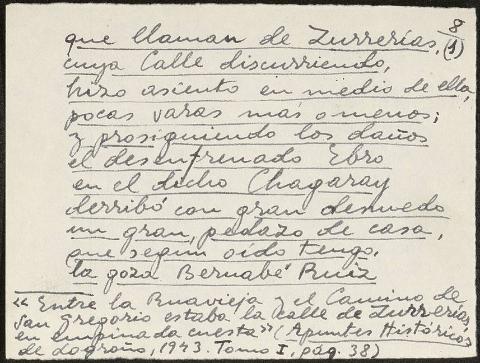 8
que llaman de Zurrerías, (1)
cuya Calle discurriendo,
hizo asiento en medio de ella,
pocas varas más o menos;
y prosiguiendo los daños
el desenfrenado Ebro
en el dicho Chagaray
derribó con gran denuedo
un gran pedazo de casa,
que según oído tengo,
la goza Bernabé Ruiz
"Entre la Ruavieja y el Camino de
San Gregorio estaba la calle de Zurrerías,
en empinada cuesta" (Apuntes Históricos
de Logroño, 1943. Tomo I, pág. 38)